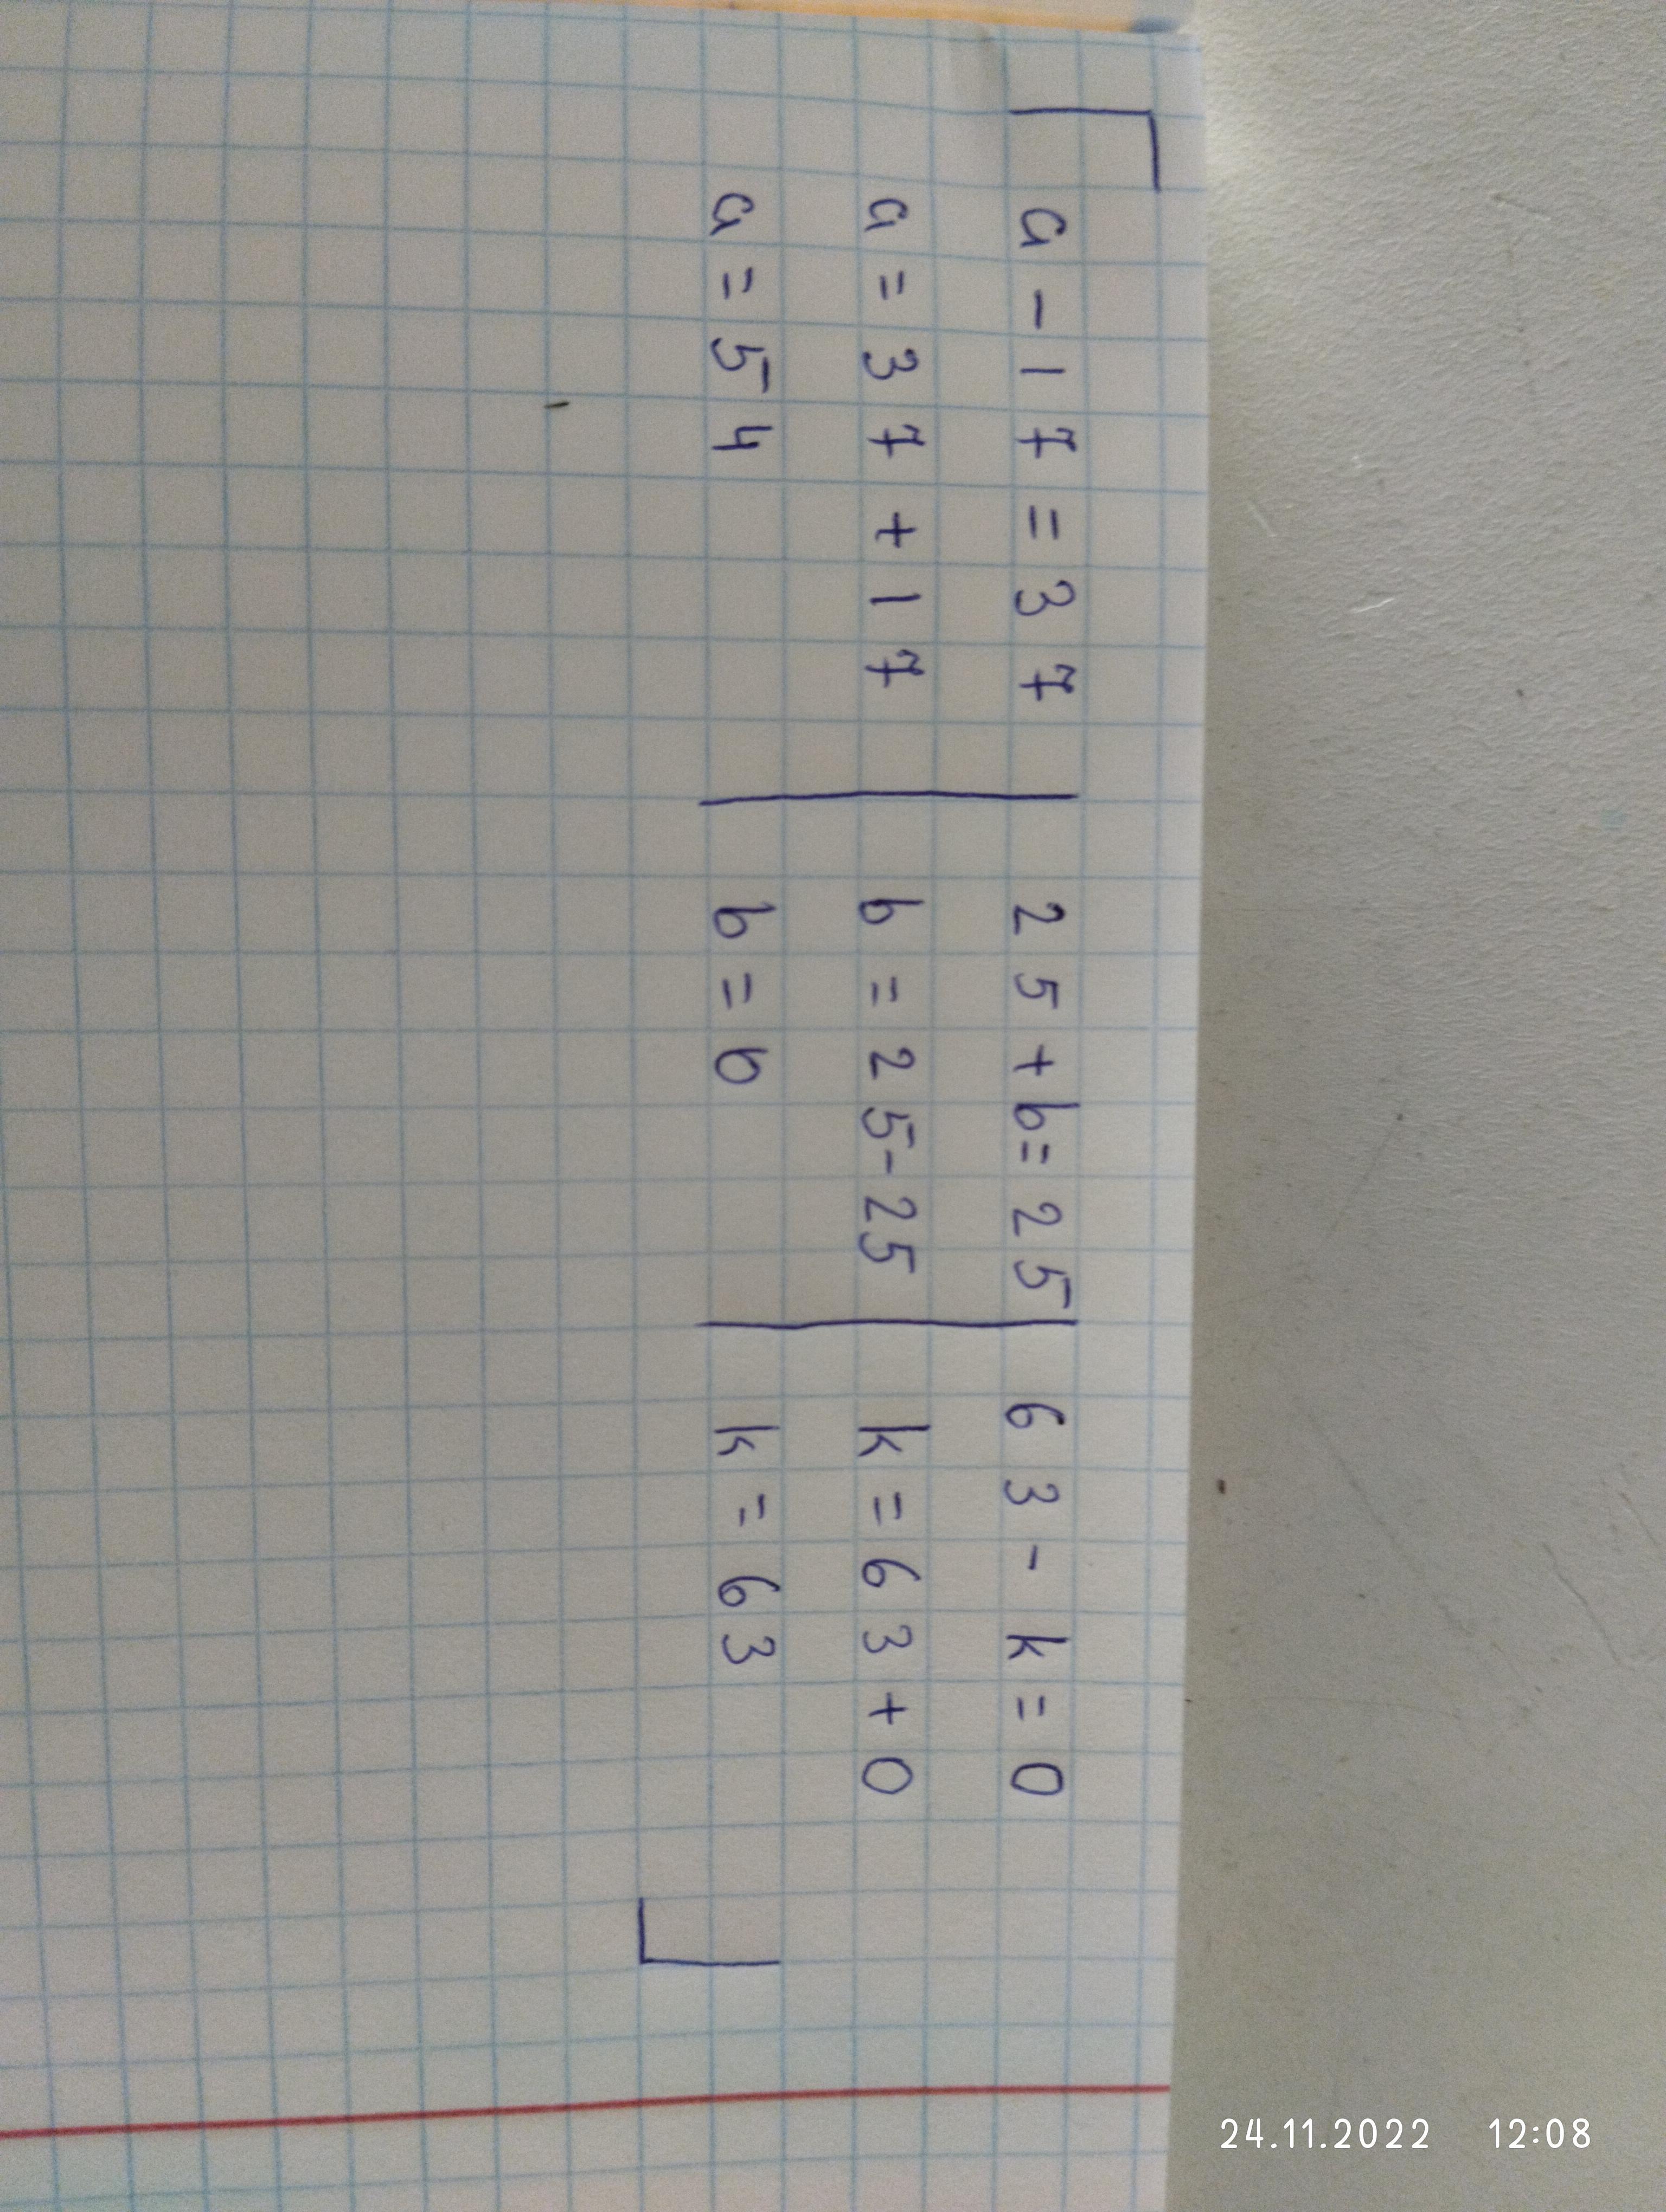 a - 17 = 37 | 25 + b = 25 | 63 - k = 0
a = 37 + 17 | b = 25 - 25 | k = 63 + 0
a = 54 | b = b | k = 63
24.11.2022 12:08